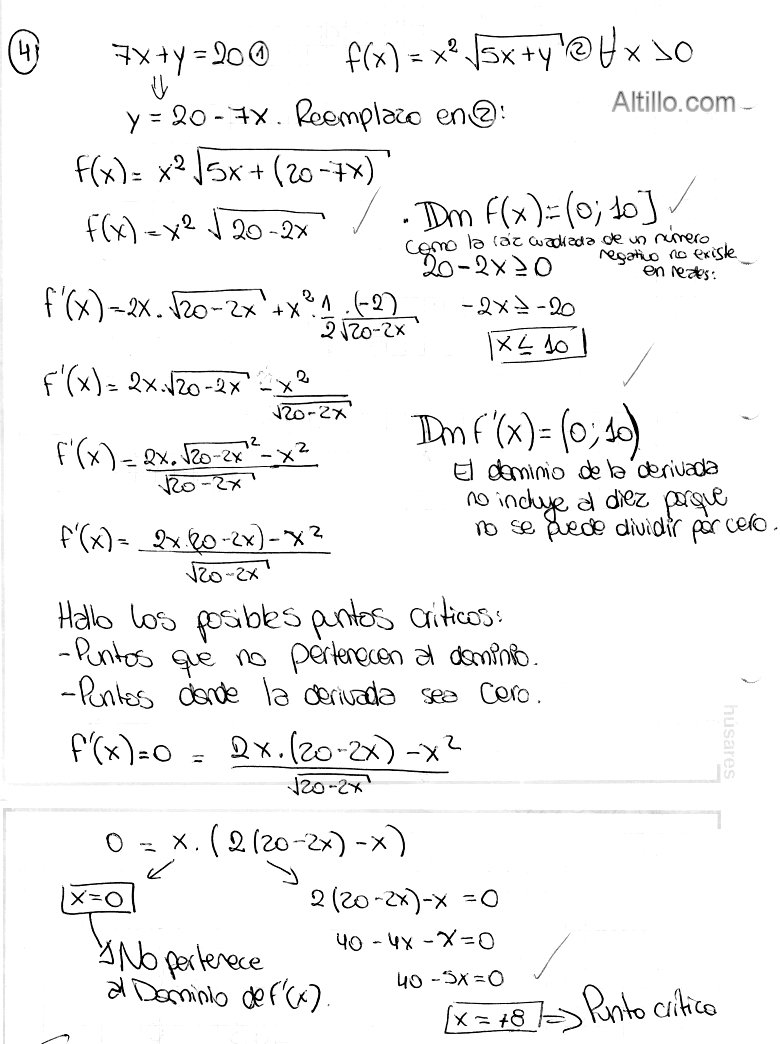 ④ 7x+y=20① f(x)=x²√(5x+y) ② ∀x>0
⇓
Altillo.com
y=20-7x. Reemplazo en②:
f(x)=x²√(5x+(20-7x))
f(x)=x²√(20-2x) ✓
. Dm f(x)=(0;10] ✓
como la raiz cuadrada de un número
negativo no existe
en reales:
20-2x≥0
-2x≥-20
x≤10
f'(x)=2x.√(20-2x)+x².1/2.(-2)/√(20-2x)
f'(x)=2x.√(20-2x) -x²/√(20-2x)
f'(x)=(2x.√(20-2x)²-x²)/√(20-2x)
✓
Dm f'(x)=(0;10)
El dominio de la derivada
no incluye al diez porque
no se puede dividir por cero.
f'(x)=(2x(20-2x)-x²)/√(20-2x)
Hallo los posibles puntos críticos:
-Puntos que no pertenecen al dominio.
-Puntos donde la derivada sea cero.
f'(x)=0 = (2x.(20-2x)-x²)/√(20-2x)
husares
0 = x.(2(20-2x)-x)
x=0
No pertenece
al Dominio de f'(x).
2(20-2x)-x=0
40-4x-x=0
40-5x=0 ✓
x=+8 ⇒ Punto crítico